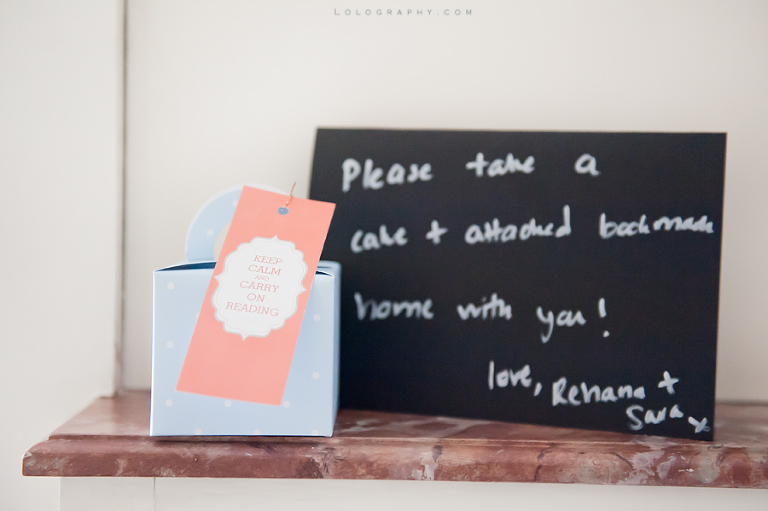 Lolography.com
KEEP
CALM
AND
CARRY
ON
READING
Please take a
cake + attached bookmark
home with you!
love, Rehana +
Sara x